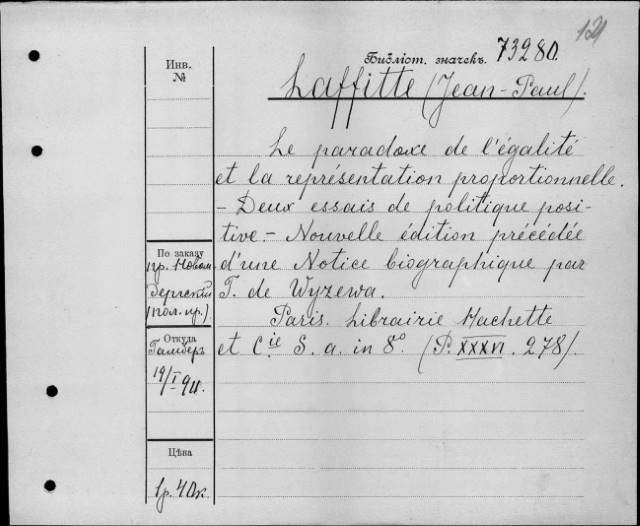 121
Библіот. значекъ. 73280.
Инв.
№
Laffitte (Jean-Paul).
Le paradoxe de l'égalité
et la représentation proportionnelle.
- Deux essais de politique posi-
tive. - Nouvelle édition précédée
d'une Notice biographique par
T. de Wyzewa.
Paris. Librairie Hachette
et Cie S. a. in 8° (P. XXXVI. 278).
По заказу
пр. Новом
бергскій
(пол. пр.)
Откуда
19/I
Цѣва
1р. 40к.